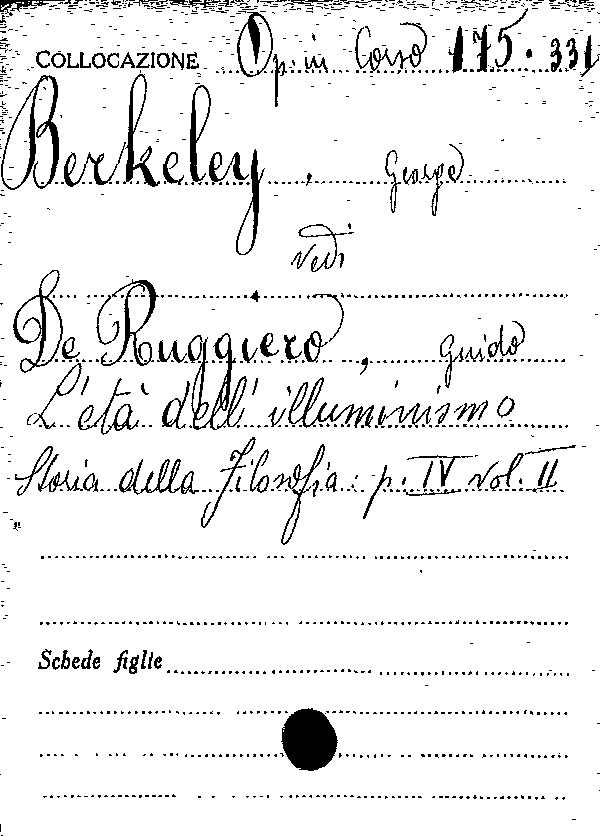 COLLOCAZIONE Op. in Corso 175. 331
Berkeley, George
Vedi
De Ruggiero, Guido
L'età dell'illuminismo
Storia della Filosofia: p. IV vol. II
Schede figlie